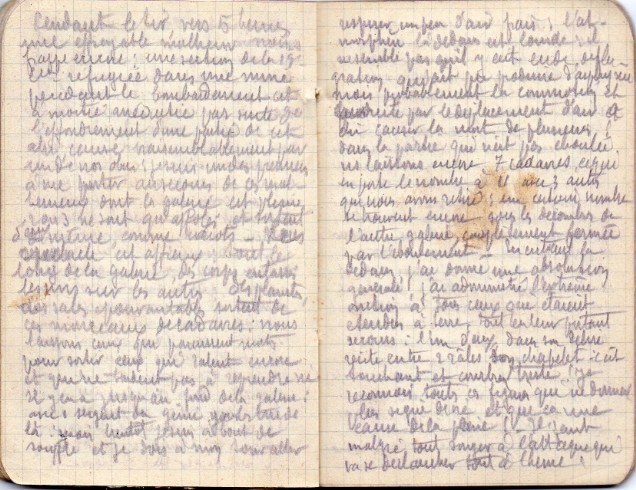 Pendant le tir vers 5 heures
une effroyable malheur nous
frappe encore : une section de la 19e
s'est réfugiée dans une mine
pendant le bombardement est
à moitié anéantie par suite de
l'effondrement d'une partie de cet
abri causé vraisemblablement par
un de nos obus ; je suis un des premiers
à me porter au secours de ces mal-
heureux dont la galerie est pleine,
2 ou 3 ne sont qu' et sortent
d'eux même comme idiots - Le
spectacle est affreux ; tout le
long de la galerie des corps entassés
les uns sur les autres des plaintes
des râles épouvantables sortent de
ces morceaux de cadavres ; nous
laissons ceux qui paraissent morts
pour sortir ceux qui râlent encore
et qui ne tardent pas à reprendre
 jusqu'au fond de la galerie
avec 1 sergent du génie
là : mais bientôt je suis à bout de
souffle et je dois à mon tour aller
respirer un peu d'air frais ; l'at-
mosphère là dedans est lourde ; il
ne semble pas qu'il y ait eu de défla-
gration qui ait pu produire d'asphyxie
mais probablement la commotion et
 par le déplacement d'air a
dû causer la mort de plusieurs ;
dans la partie qui n'est pas éboulée
ns laissons encore 7 cadavres, ce qui
en porte le nombre à 11 avec 3 autres
qui nous avons retiré ; un certain nombre
se trouvent encore sous les décombres de
l'autre galerie complètement fermée
par l'éboulement - En entrant là
dedans, j'ai donné une absolution
générale ; j'ai administré l'extrême
onction à tous ceux que étaient
étendus à terre, tout en leur portant
secours : l'un d'eux, dans son délire
récite entre 2 râles son chapelet : c'est
touchant et combien triste ! Je
reconnais toutes ces figures qui ne donnent
plus signe de vie et que ça me
cause de la peine ! Il faut
malgré tout songer à l'attaque qui
va se déclancher tout à l'heure !